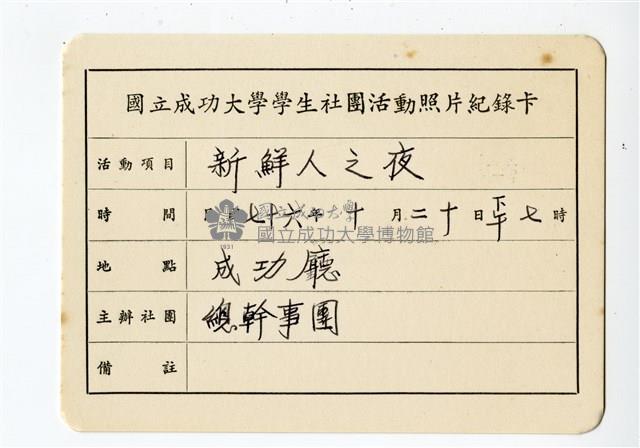 國立成功大學學生社團活動照片紀錄卡
活動項目 新鮮人之夜
時間 七十六年十月二十日下午七時
國立成功大學
國立成功大學博物館
1931
地點 成功廳
主辦社團 總幹事團
備註